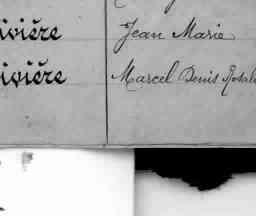 ivière Jean Marie
ivière Marcel Denis